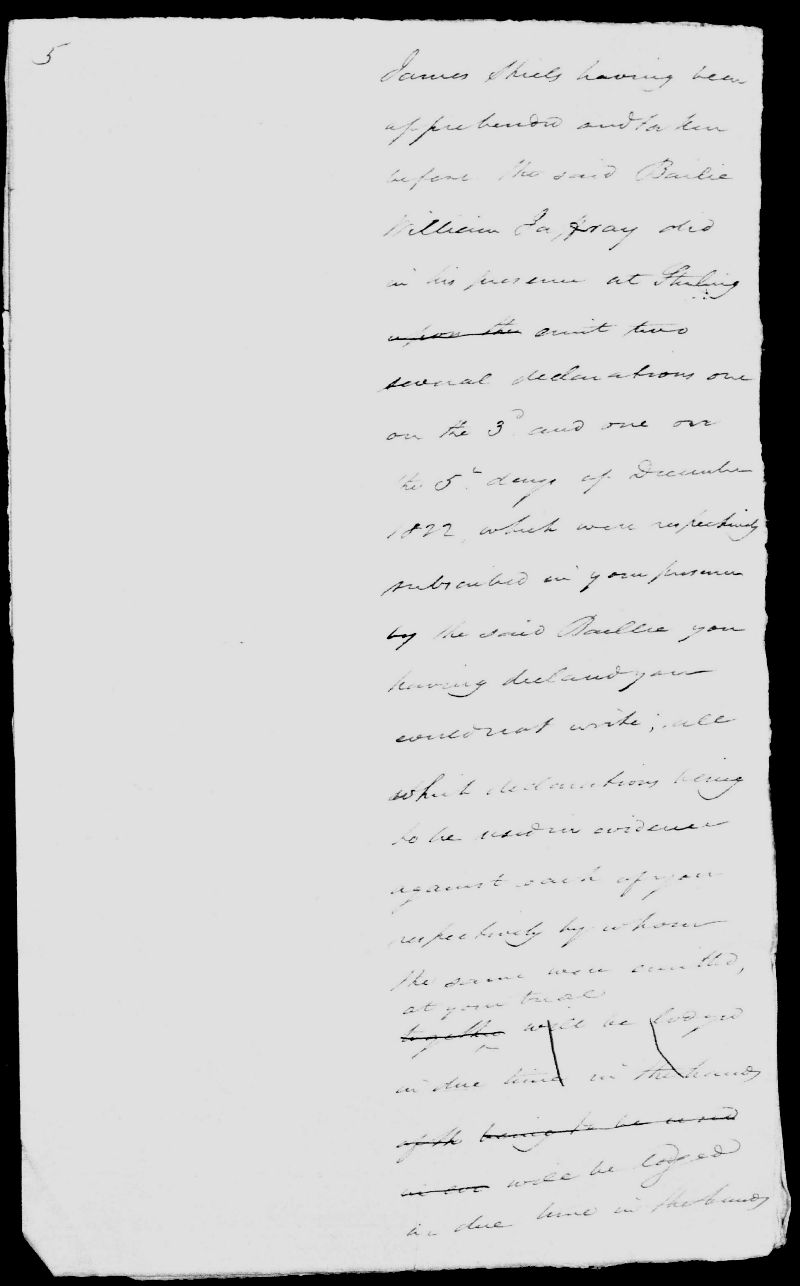 5
James Shiels having been
apprehended and taken
before the said Bailie
William Jaffray did
in his presence at Stirling
upon the emit two
several declarations one
on the 3d and one on
the 5th days of December
1822 which were respectively
subscribed in your presence
by the said Baillie you
having declared you
could not write; all
which declarations being
to be used in evidence
against each of you
respectively by whom
the same were emitted,
at your trial
together will be lodged
in due time in the hands
of the being to be used
in evi will be lodged
in due time in the hands